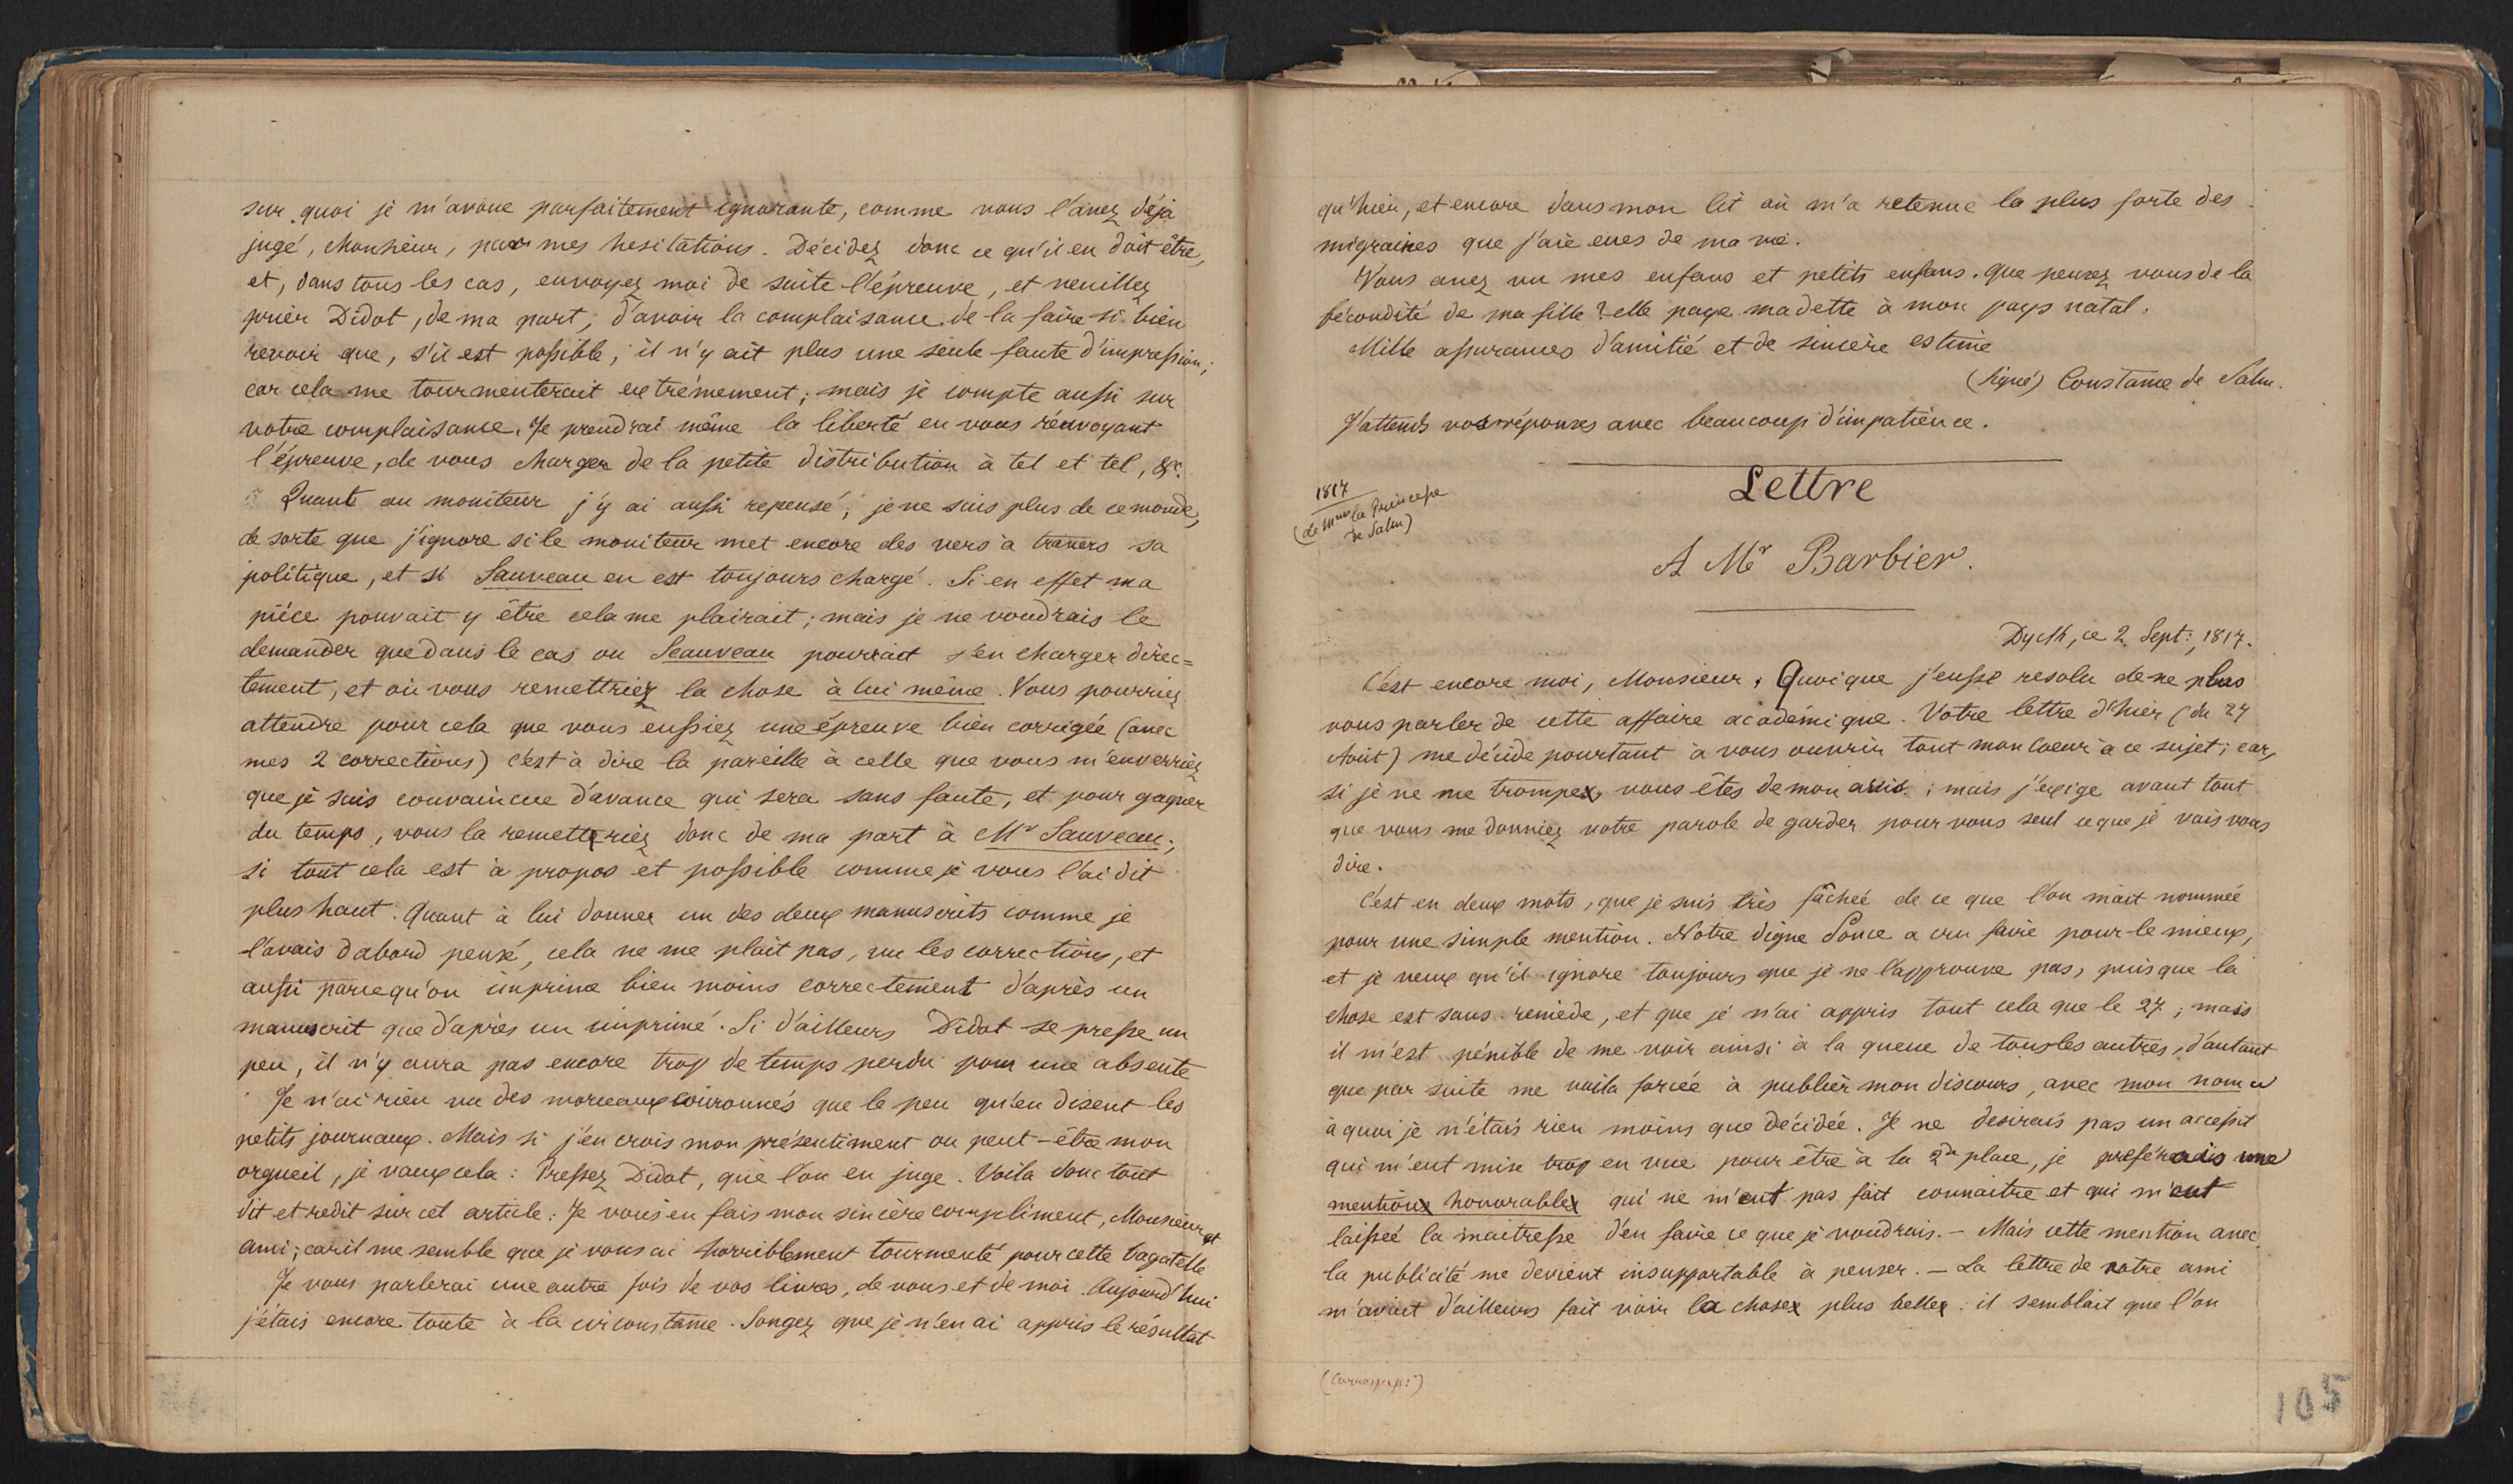 sur quoi je m'avoue parfaitement ignorante, comme vous l'avez déjà
jugé, Monsieur, par mes hesitations. Décidez donc ce qu'il en doit être,
et, dans tous les cas, envoyez moi de suite l'épreuve, et veuillez
prier Didot, de ma part, d'avoir la complaisance de la faire si bien
revoir que, s'il est possible, il n'y ait plus une seule faute d'impression;
car cela me tourmenterait extrêmement; mais je compte aussi sur
votre complaisance. Je prendrai même la liberté en vous renvoyant
l'épreuve, de vous charger de la petite distribution à tel et tel, &c.
Quant au moniteur j'y ai aussi repensé; je ne suis plus de ce monde,
de sorte que j'ignore si le moniteur met encore des vers à travers sa
politique, et si Sauveau en est toujours chargé. Si en effet ma
pièce pouvait y être cela me plairait; mais je ne voudrais le
demander que dans le cas ou Seauveau pourrait s'en charger direc=
tement, et où vous remettriez la chose à lui même. Vous pourriez
attendre pour cela que vous eussiez une épreuve bien corrigée (avec
mes 2 corrections) c'est à dire la pareille à celle que vous m'enverriez
que je suis convaincue d'avance qui sera sans faute, et pour gagner
du temps, vous la remettriez donc de ma part à Mr Sauveau;
si tout cela est à propos et possible comme je vous l'ai dit
plus haut. Quant à lui donner un des deux manuscrits comme je
l'avais d'abord pensé, cela ne me plait pas, vu les corrections, et
aussi parce qu'on imprime bien moins correctement d'après un
manuscrit que d'après un imprimé. Si d'ailleurs Didot se presse un
peu, il n'y aura pas encore trop de temps perdu pour une absente
Je n'ai rien vu des morceaux couronnés que le peu qu'en disent les
petits journaux. Mais si j'en crois mon présentiment ou peut-être mon
orgueil, je vaux cela: Pressez Didot, que l'on en juge. Voila donc tout
dit et redit sur cet article: Je vous en fais mon sincère compliment, Monsieur et
ami; car il me semble que je vous ai horriblement tourmenté pour cette bagatelle
Je vous parlerai une autre fois de vos livres, de vous et de moi. Aujourd'hui
j'étais encore toute à la circonstance. Songez que je n'en ai appris le résultat
qu'hier, et encore dans mon lit où m'a retenue la plus forte des
migraines que j'aie eues de ma vie.
Vous avez vu mes enfans et petits enfans. que pensez vous de la
fécondité de ma fille? elle paye ma dette à mon pays natal.
Mille assurances d'amitié et de sincère estime
(signé) Constance de Salm.
J'attends vos réponses avec beaucoup d'impatience.
Lettre
1817
(de Mme la Princesse
de Salm)
A Mr Barbier.
Dyck, ce 2 Sept: 1817.
C'est encore moi, Monsieur, Quoique j'eusse resolu de ne plus
vous parler de cette affaire académique. Votre lettre d'hier (du 27
Août) me décide pourtant à vous ouvrir tout mon coeur à ce sujet; car,
si je ne me trompe, vous êtes de mon avis; mais j'exige avant tout
que vous me donniez votre parole de garder pour vous seul ce que je vais vous
dire.
C'est en deux mots, que je suis très fâchée de ce que l'on m'ait nommée
pour une simple mention. Notre digne Ponce a cru faire pour le mieux,
et je veux qu'il ignore toujours que je ne l'approuve pas, puisque la
chose est sans remède, et que je n'ai appris tout cela que le 27; mais
il m'est pénible de me voir ainsi à la queue de tous les autres, d'autant
que par suite me voila forcée à publier mon discours, avec mon nom
à quoi je n'étais rien moins que décidée. Je ne desirais pas un accessit
qui m'eut mise trop en vue pour être à la 2de place, je préférais une
mention honorable qui ne m'eut pas fait connaitre et qui m'eut
laissée la maitresse d'en faire ce que je voudrais. - Mais cette mention avec
la publicité me devient insupportable à penser. - La lettre de notre ami
m'avait d'ailleurs fait voir la chose plus belle: il semblait que l'on
105